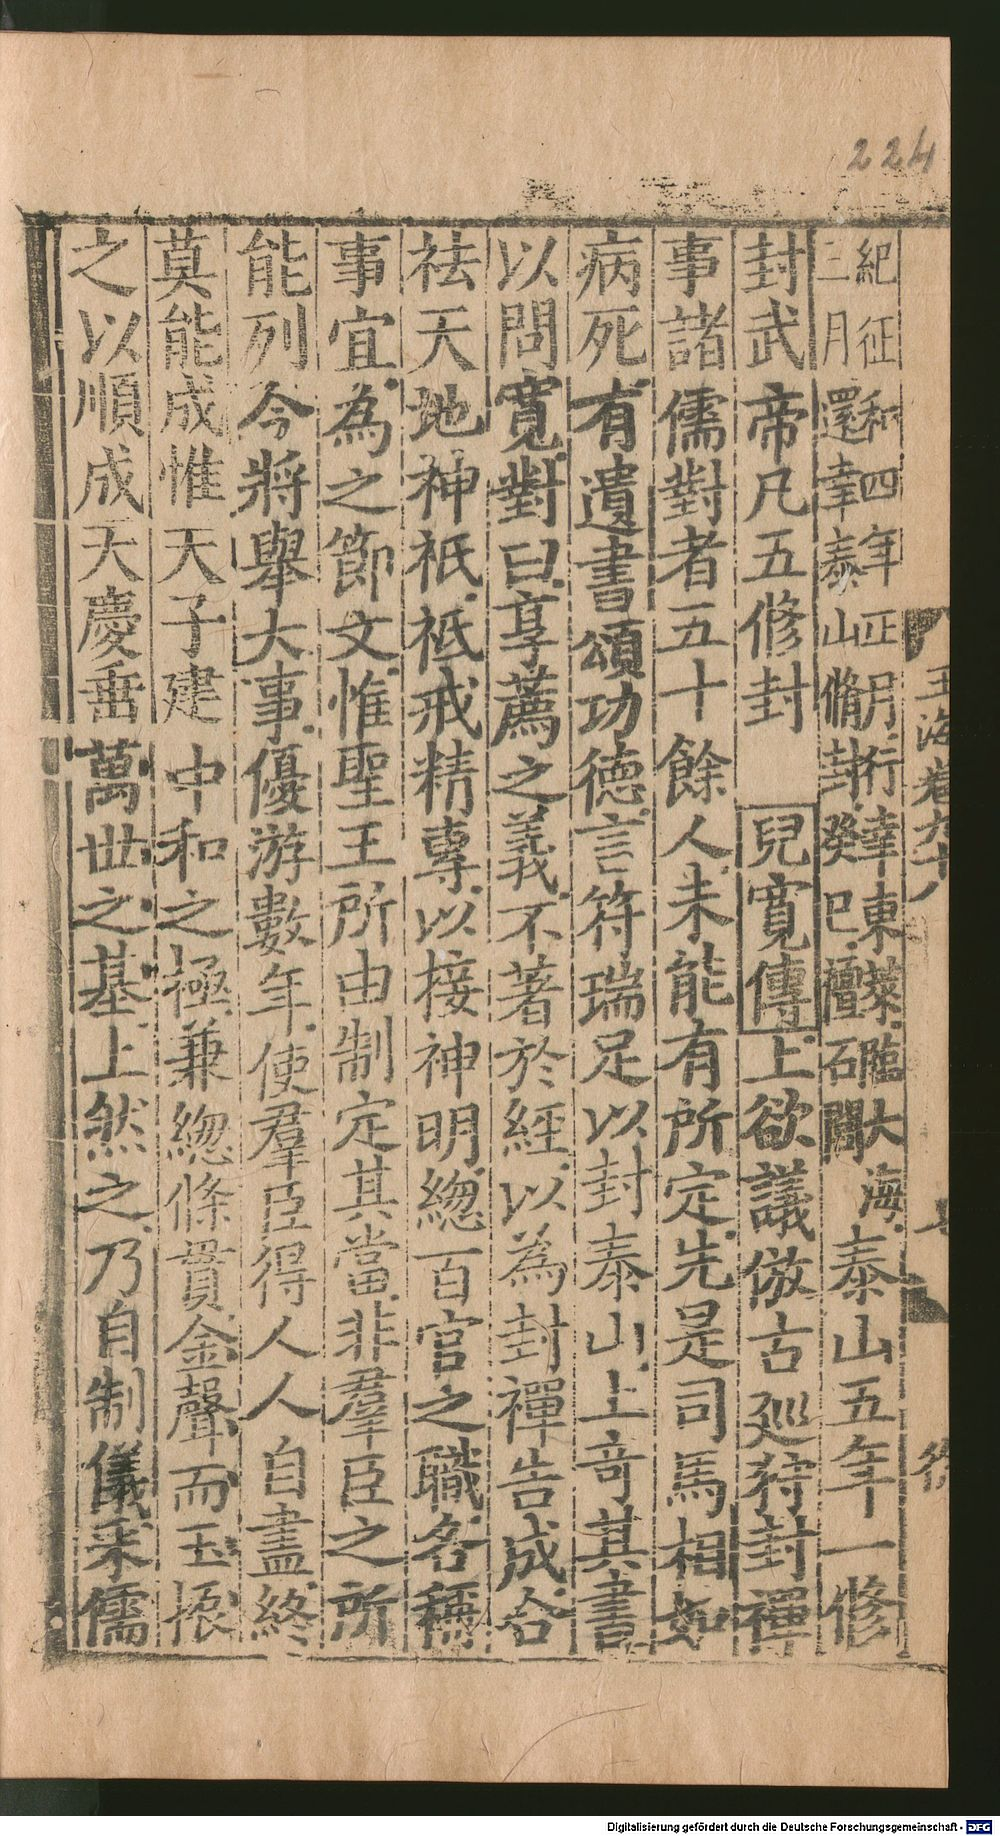 224
玉海卷九十八
紀征和四年正月行幸東萊臨大海
三月還幸泰山脩封癸巳禮石閭
泰山五年一修
封武帝凡五修封 兒寬傳上欲議倣古廵狩封禪
事諸儒對者五十餘人未能有所定先是司馬相如
病死有遺書頌功德言符瑞足以封泰山上奇其書
以問寬對曰享薦之義不著於經以為封禪告成合
祛天地神祇祗戒精專以接神明緫百官之職各稱
事宜為之節文惟聖王所由制定其當非羣臣之所
能列今將舉大事優游數年使羣臣得人人自盡終
莫能成惟天子建中和之極兼緫條貫金聲而玉振
之以順成天慶垂萬世之基上然之乃自制儀采儒
Digitalisierung gefördert durch die Deutsche Forschungsgemeinschaft - DFG